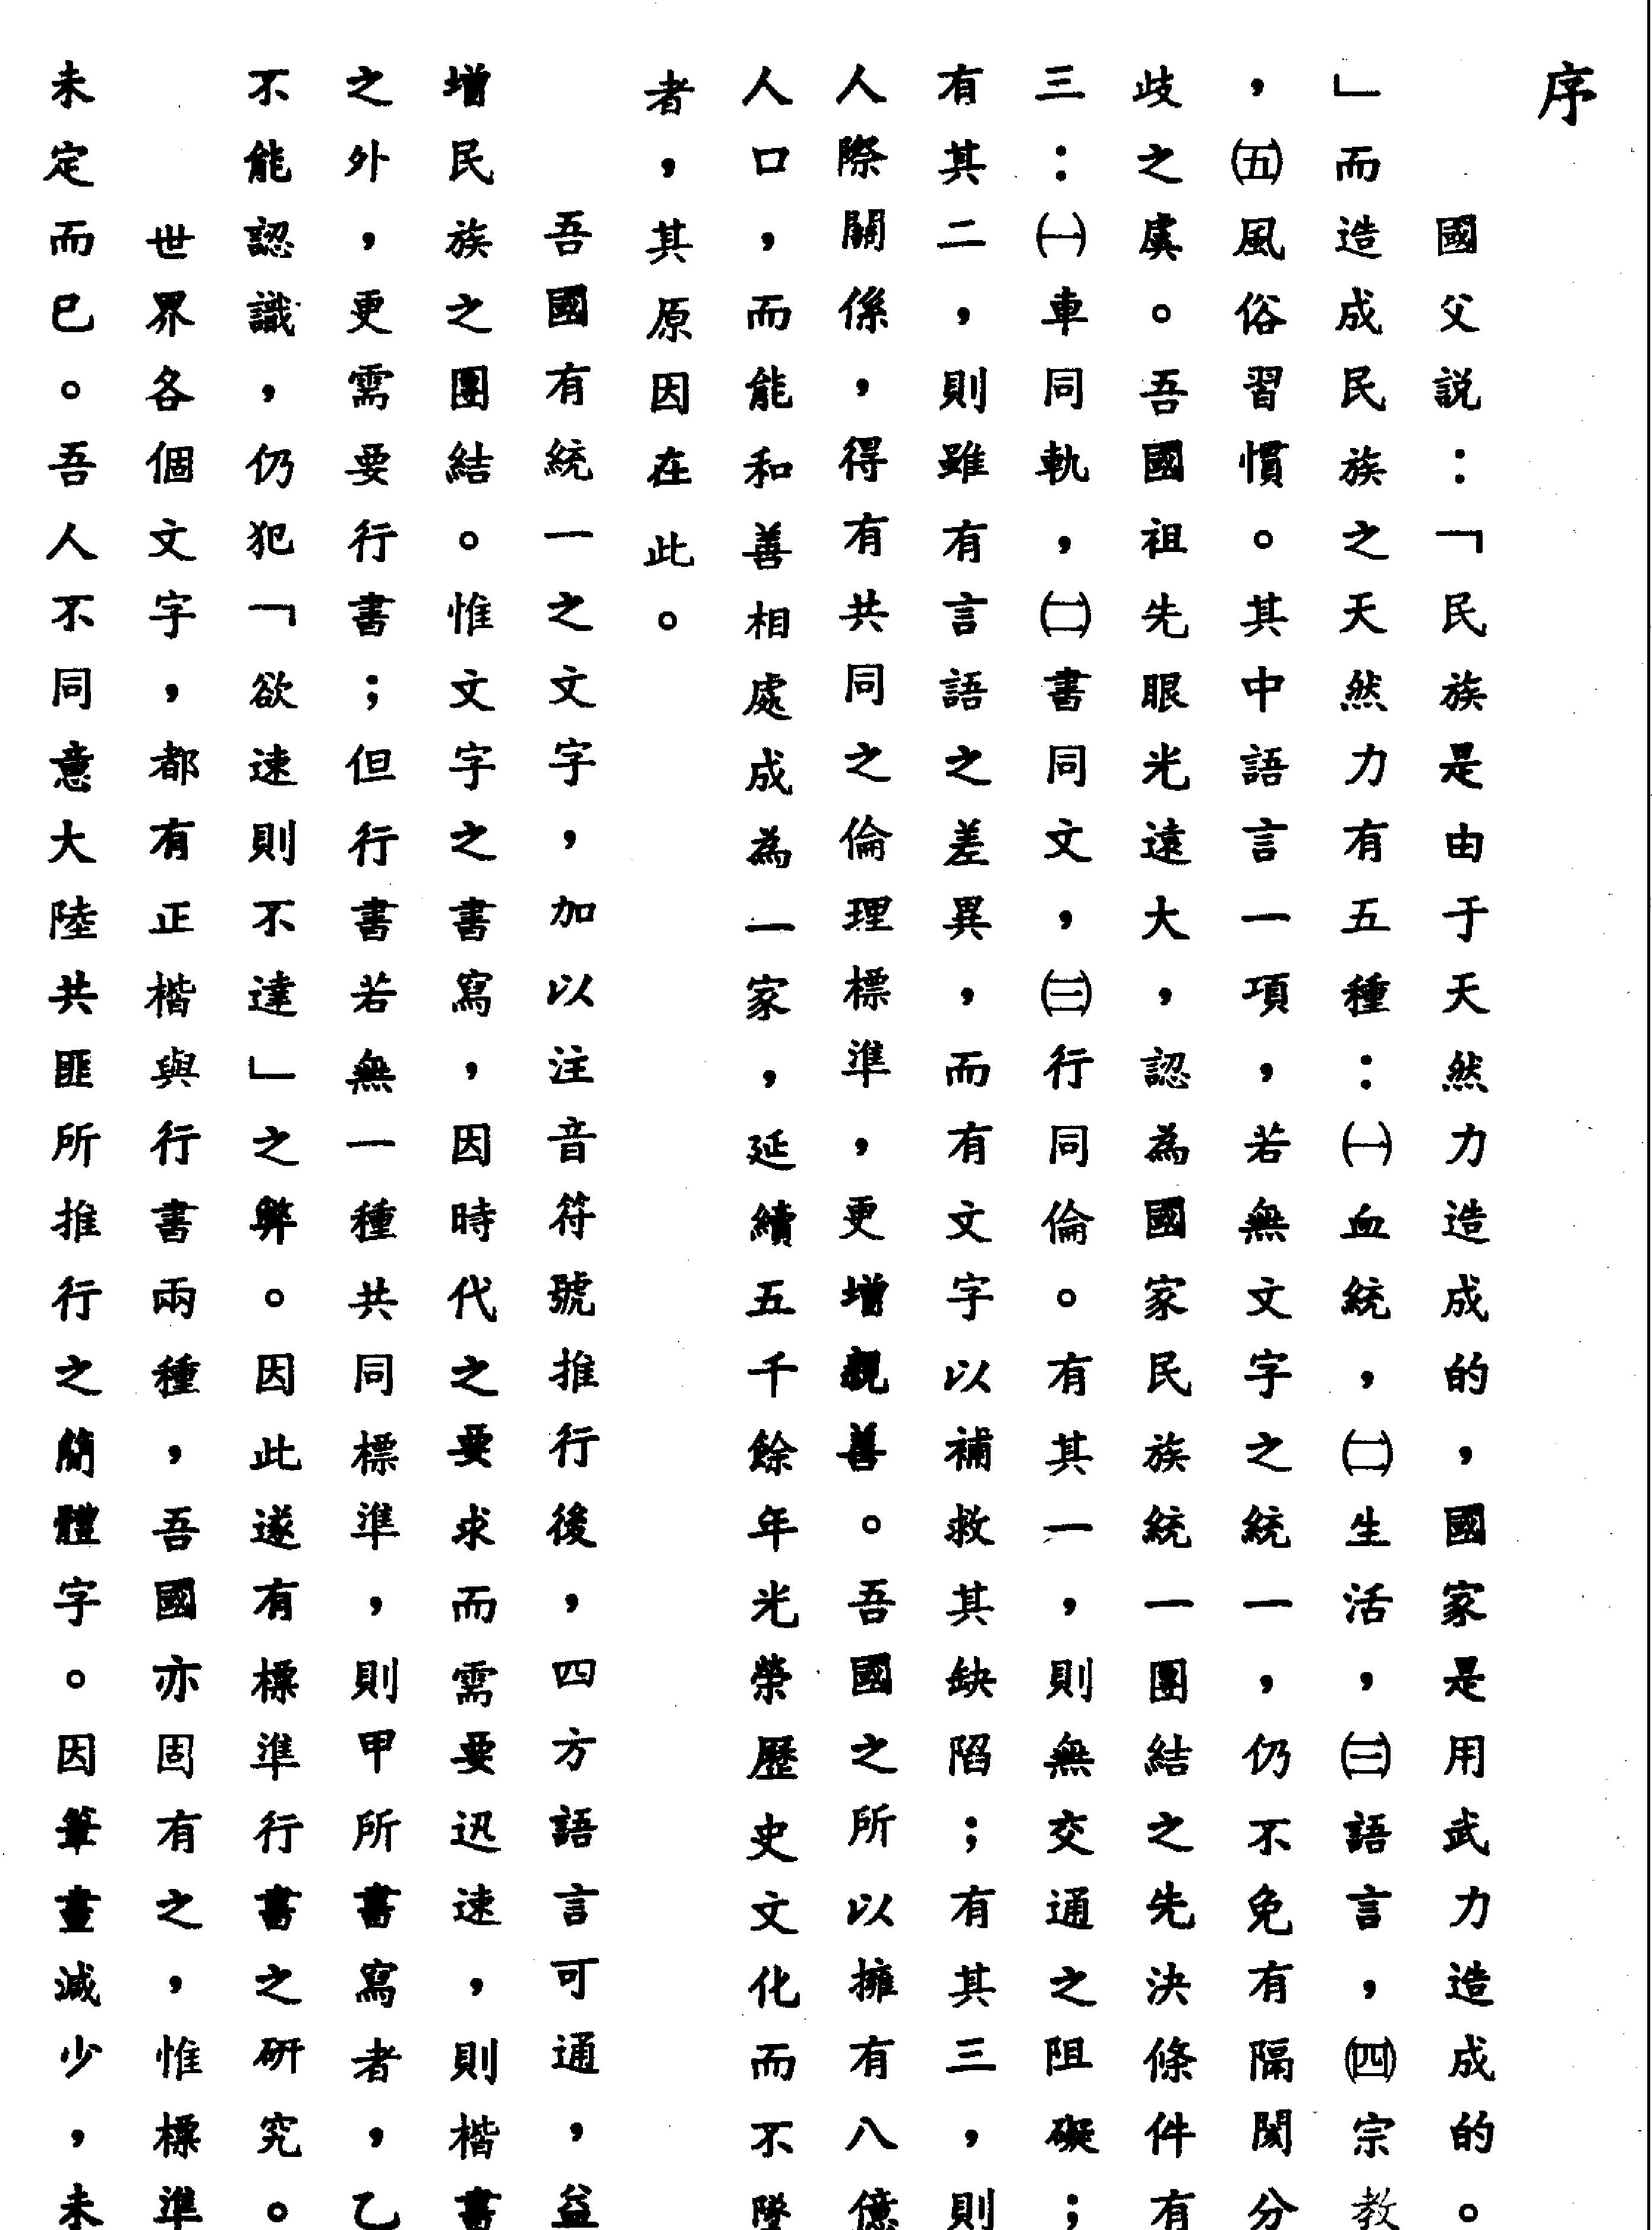 序
國父説：「民族是由于天然力造成的，國家是用武力造成的。
」而造成民族之天然力有五種：㈠血統，㈡生活，㈢語言，㈣宗教
，㈤風俗習慣。其中語言一項，若無文字之統一，仍不免有隔閡分
歧之虞。吾國祖先眼光遠大，認為國家民族統一團結之先決條件有
三：㈠車同軌，㈡書同文，㈢行同倫。有其一，則無交通之阻礙；
有其二，則雖有言語之差異，而有文字以補救其缺陷；有其三，則
人際關係，得有共同之倫理標準，更增親善。吾國之所以擁有八億
人口，而能和善相處成為一家，延續五千餘年光榮歷史文化而不墜
者，其原因在此。
吾國有統一之文字，加以注音符號推行後，四方語言可通，益
增民族之團結。惟文字之書寫，因時代之要求而需要迅速，則楷書
之外，更需要行書；但行書若無一種共同標準，則甲所書寫者，乙
不能認識，仍犯「欲速則不達」之弊。因此遂有標準行書之研究。
世界各個文字，都有正楷與行書兩種，吾國亦固有之，惟標準
未定而已。吾人不同意大陸共匪所推行之簡體字。因筆畫減少，未